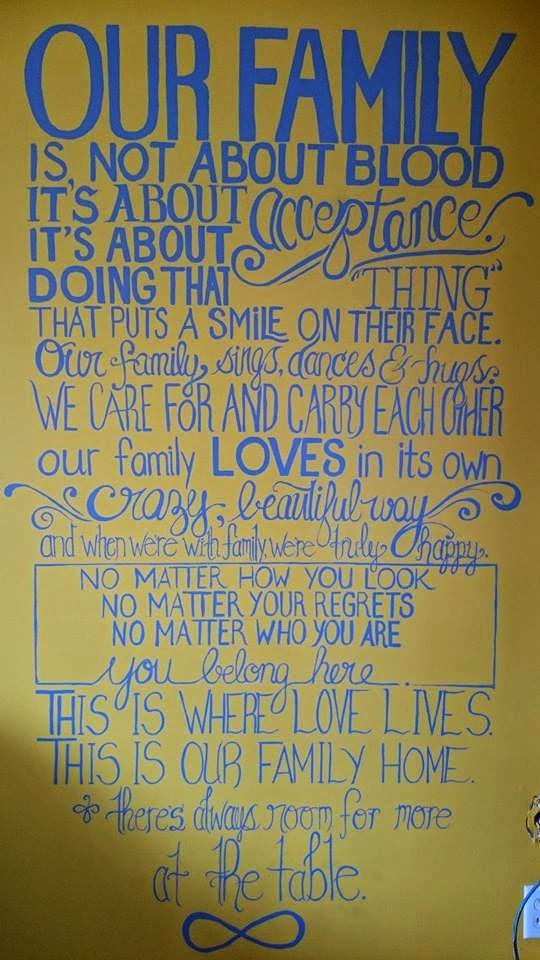 OUR FAMILY
IS NOT ABOUT BLOOD
IT'S ABOUT acceptance.
IT'S ABOUT
DOING THAT "THING"
THAT PUTS A SMiLE ON THEIR FACE.
Our family, sings, dances & hugs.
WE CARE FoR AND CARRY EACH OTHER
our family LOVES in its own
crazy, beautiful way
and when were with family were truly happy.
NO MATTER HOW YOU LOOK
NO MATTER YOUR REGRETS
NO MATTER WHO YOU ARE
you belong here.
THIS IS WHERE LOVE LIVES.
THIS IS OUR FAMILY HOME.
there's always room for more
at the table.